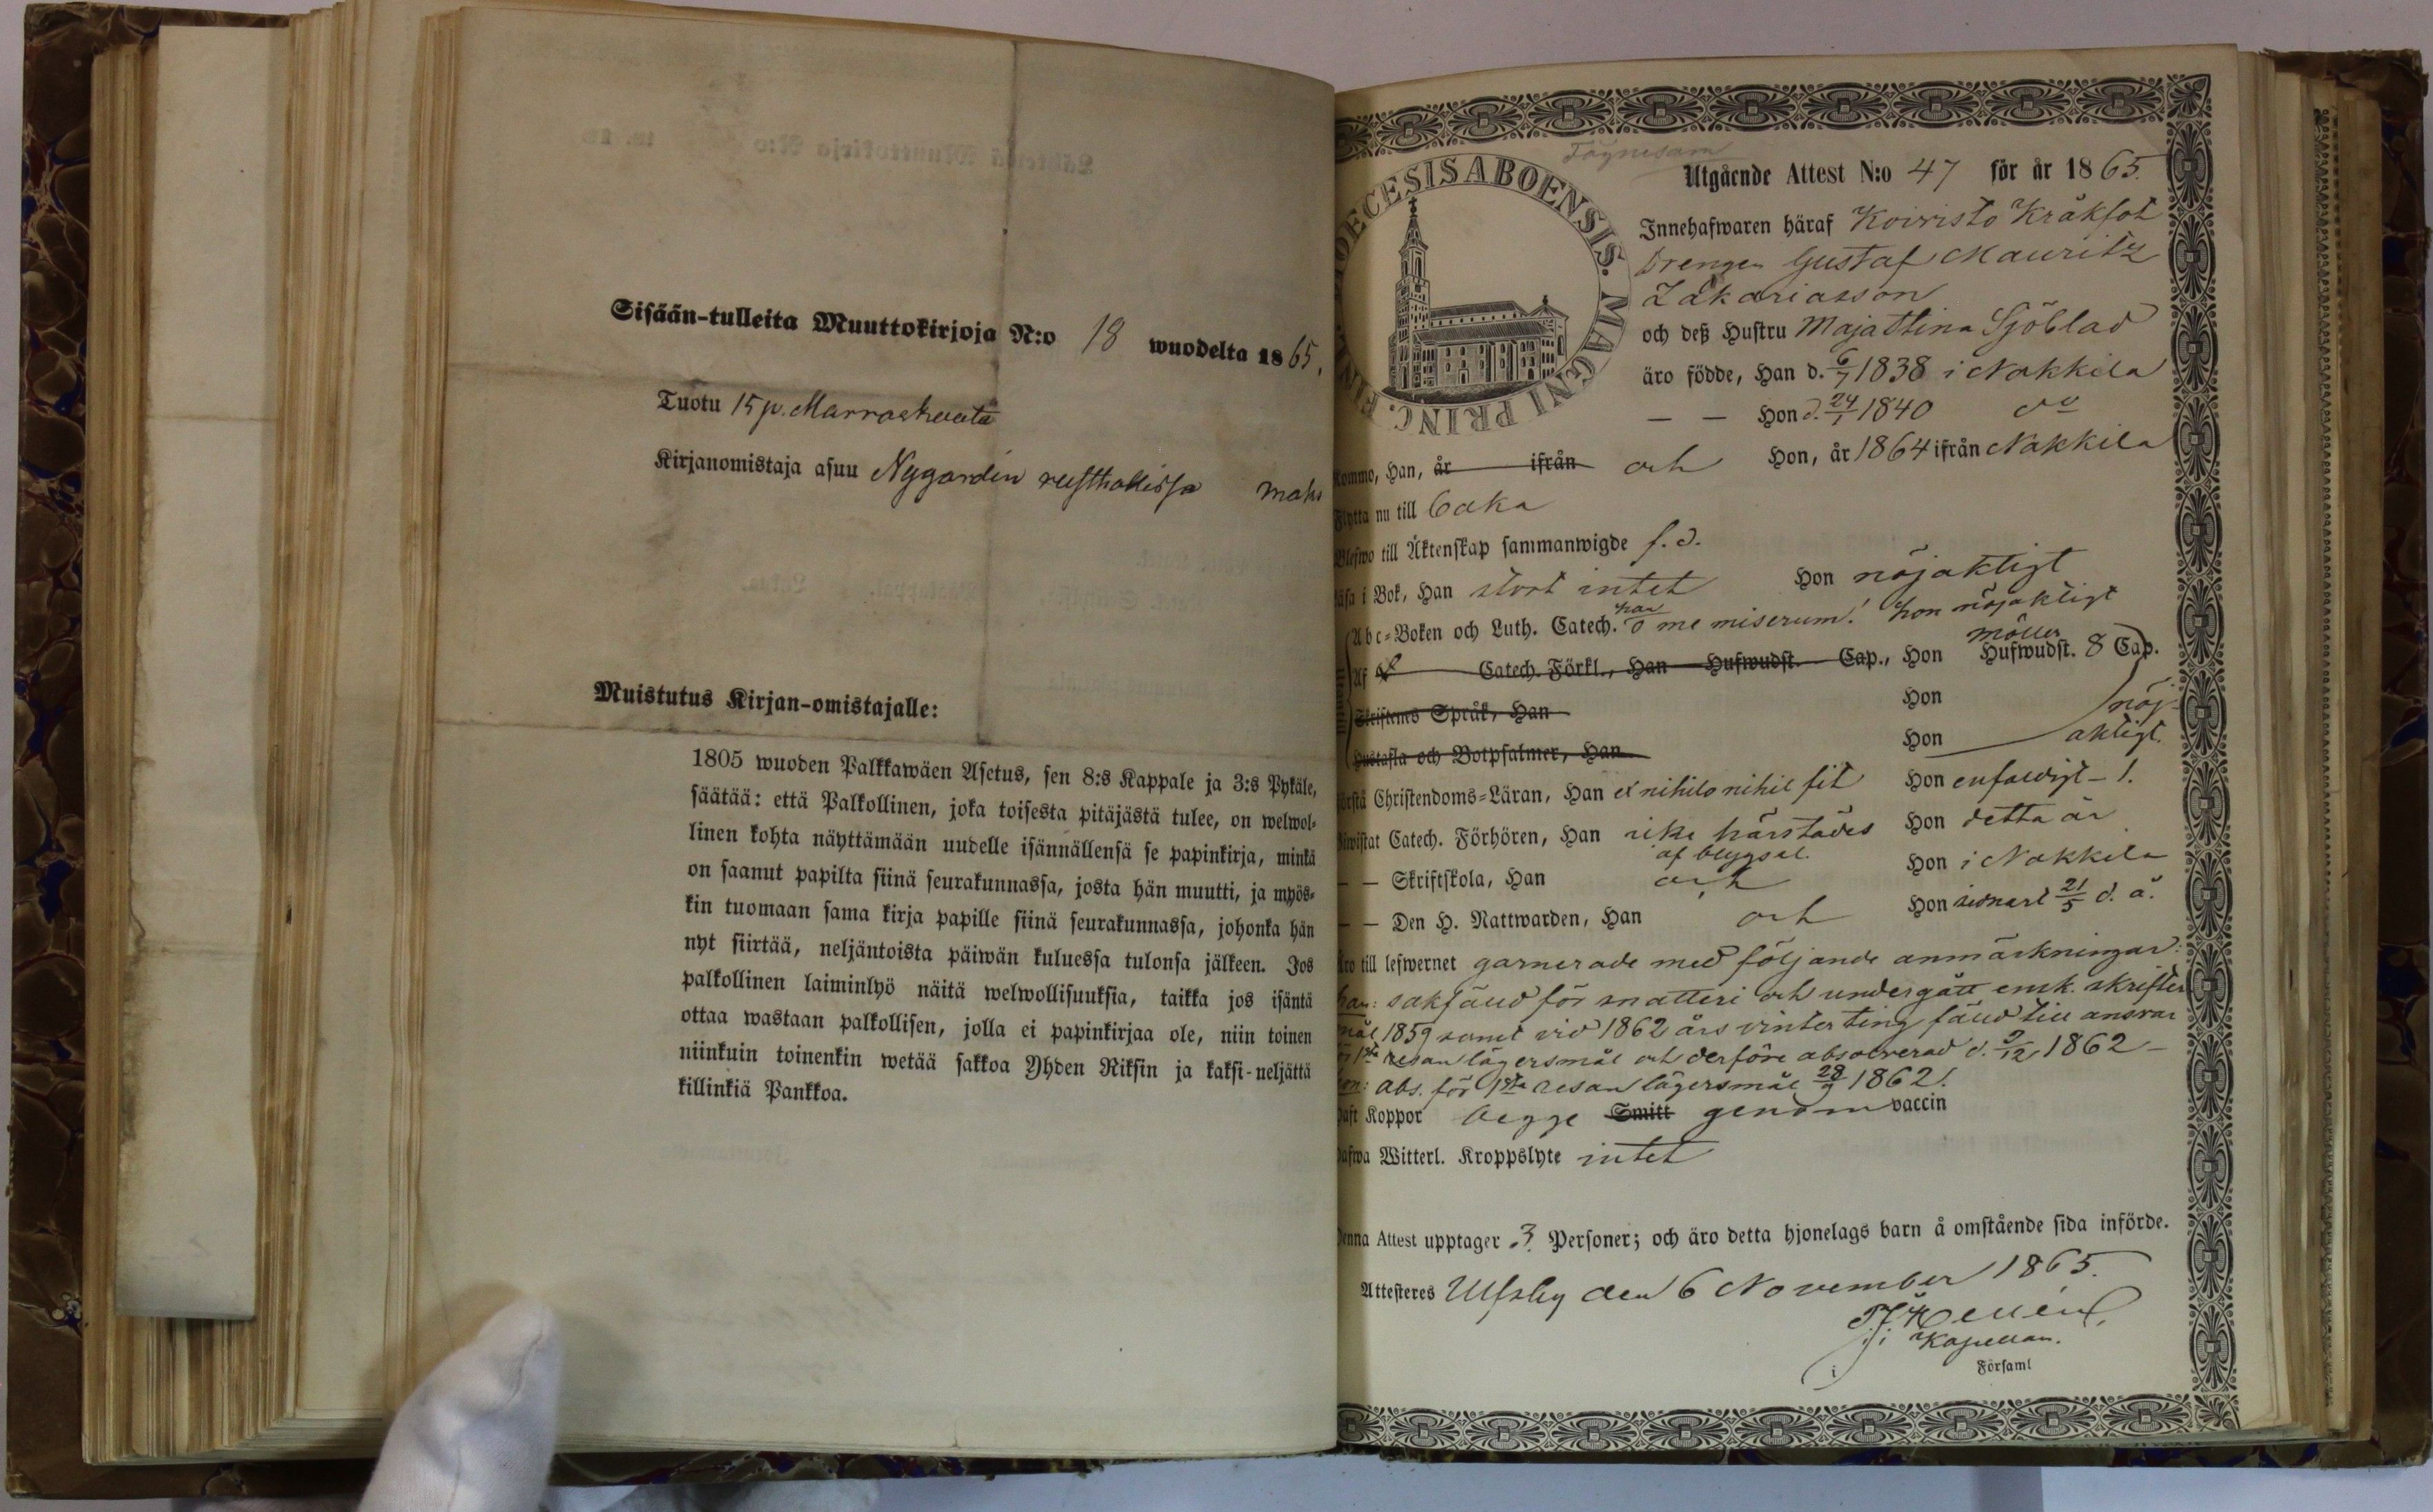 Sisään-tulleita Muuttokirjoja N:o 18 wuodelta 1865.
Tuotu 15 p. Marraskuuta
Kirjanomistaja asuu Nygårdin rusthollissa
Muistutus Kirjan-omistajalle:
1805 wuoden Palkkawäen Asetus, sen 8:s Kappale ja 3:s Pykäle,
säätää: että Palkollinen, joka toisesta pitäjästä tulee, on welwol-
linen kohta näyttämään uudelle isännällensä se papinkirja, minkä
on saanut papilta siinä seurakunnassa, josta hän muutti, ja myös-
kin tuomaan sama kirja papille siinä seurakunnassa, johonka hän
nyt siirtää, neljäntoista päiwän kuluessa tulonsa jälkeen. Jos
palkollinen laiminlyö näitä welwollisuuksia, taikka jos isäntä
ottaa wastaan palkollisen, jolla ei papinkirjaa ole, niin toinen
niinkuin toinenkin wetää sakkoa Yhden Riksin ja kaksi-neljättä
killinkiä Pankkoa.
DIOECESIS ABOENSIS. MAGNI PRINC.
Utgående Attest N:o 47 för år 1865.
Innehafwaren häraf Koivisto Kråkfot
Drengen Gustaf Mauritz
Zakariasson
och deß Hustru Maja Stina Sjöblad
äro födde, Han d. 6/7 1838 i Nakkila
— — Hon d. 24/1 1840 do
Kommo, Han, år ifrån och Hon, år 1864 ifrån Nakkila
Flytta nu till
Blefwo till Äktenskap sammanwigde s. d.
Läsa i Bok, Han stort intet Hon nöjaktigt
Abc-Boken och Luth. Catech. han o me miserum! hon nöjaktigt
Af Catech. Förkl., Han Hufwudst. Cap., Hon Möller Hufwudst. 8 Cap.
Skriftenes Språk, Han Hon nöj-
Hustafla och Botpsalmer, Han Hon aktigt.
Förstå Christendoms-Läran, Han ex nihilo nihil fit Hon enfaldigt – 1.
Biwistat Catech. Förhören, Han icke härstädes Hon detta år
af blygsel.
— — Skriftskola, Han och Hon i Nakkila
— — Den H. Nattwarden, Han och Hon sednast 21/5 d. å.
Äro till lefwernet garnerade med följande anmärkningar:
han: sakfäld för snatteri och undergått enk. skrifter
mål 1859 samt vid 1862 års vinterting fäld till ansvar
för 1sta resan lägersmål och derföre absolverad d. 3/12 1862 –
hon: abs. för 1sta resan lägersmål 28/9 1862!
Haft Koppor begge Smitt genom vaccin
Hafwa Witterl. Kroppslyte intet
Denna Attest upptager 3 Personer; och äro detta hjonelags barn å omstående sida införde.
Attesteres Ulfsby den 6 November 1865.
Kapellan.
i Församl